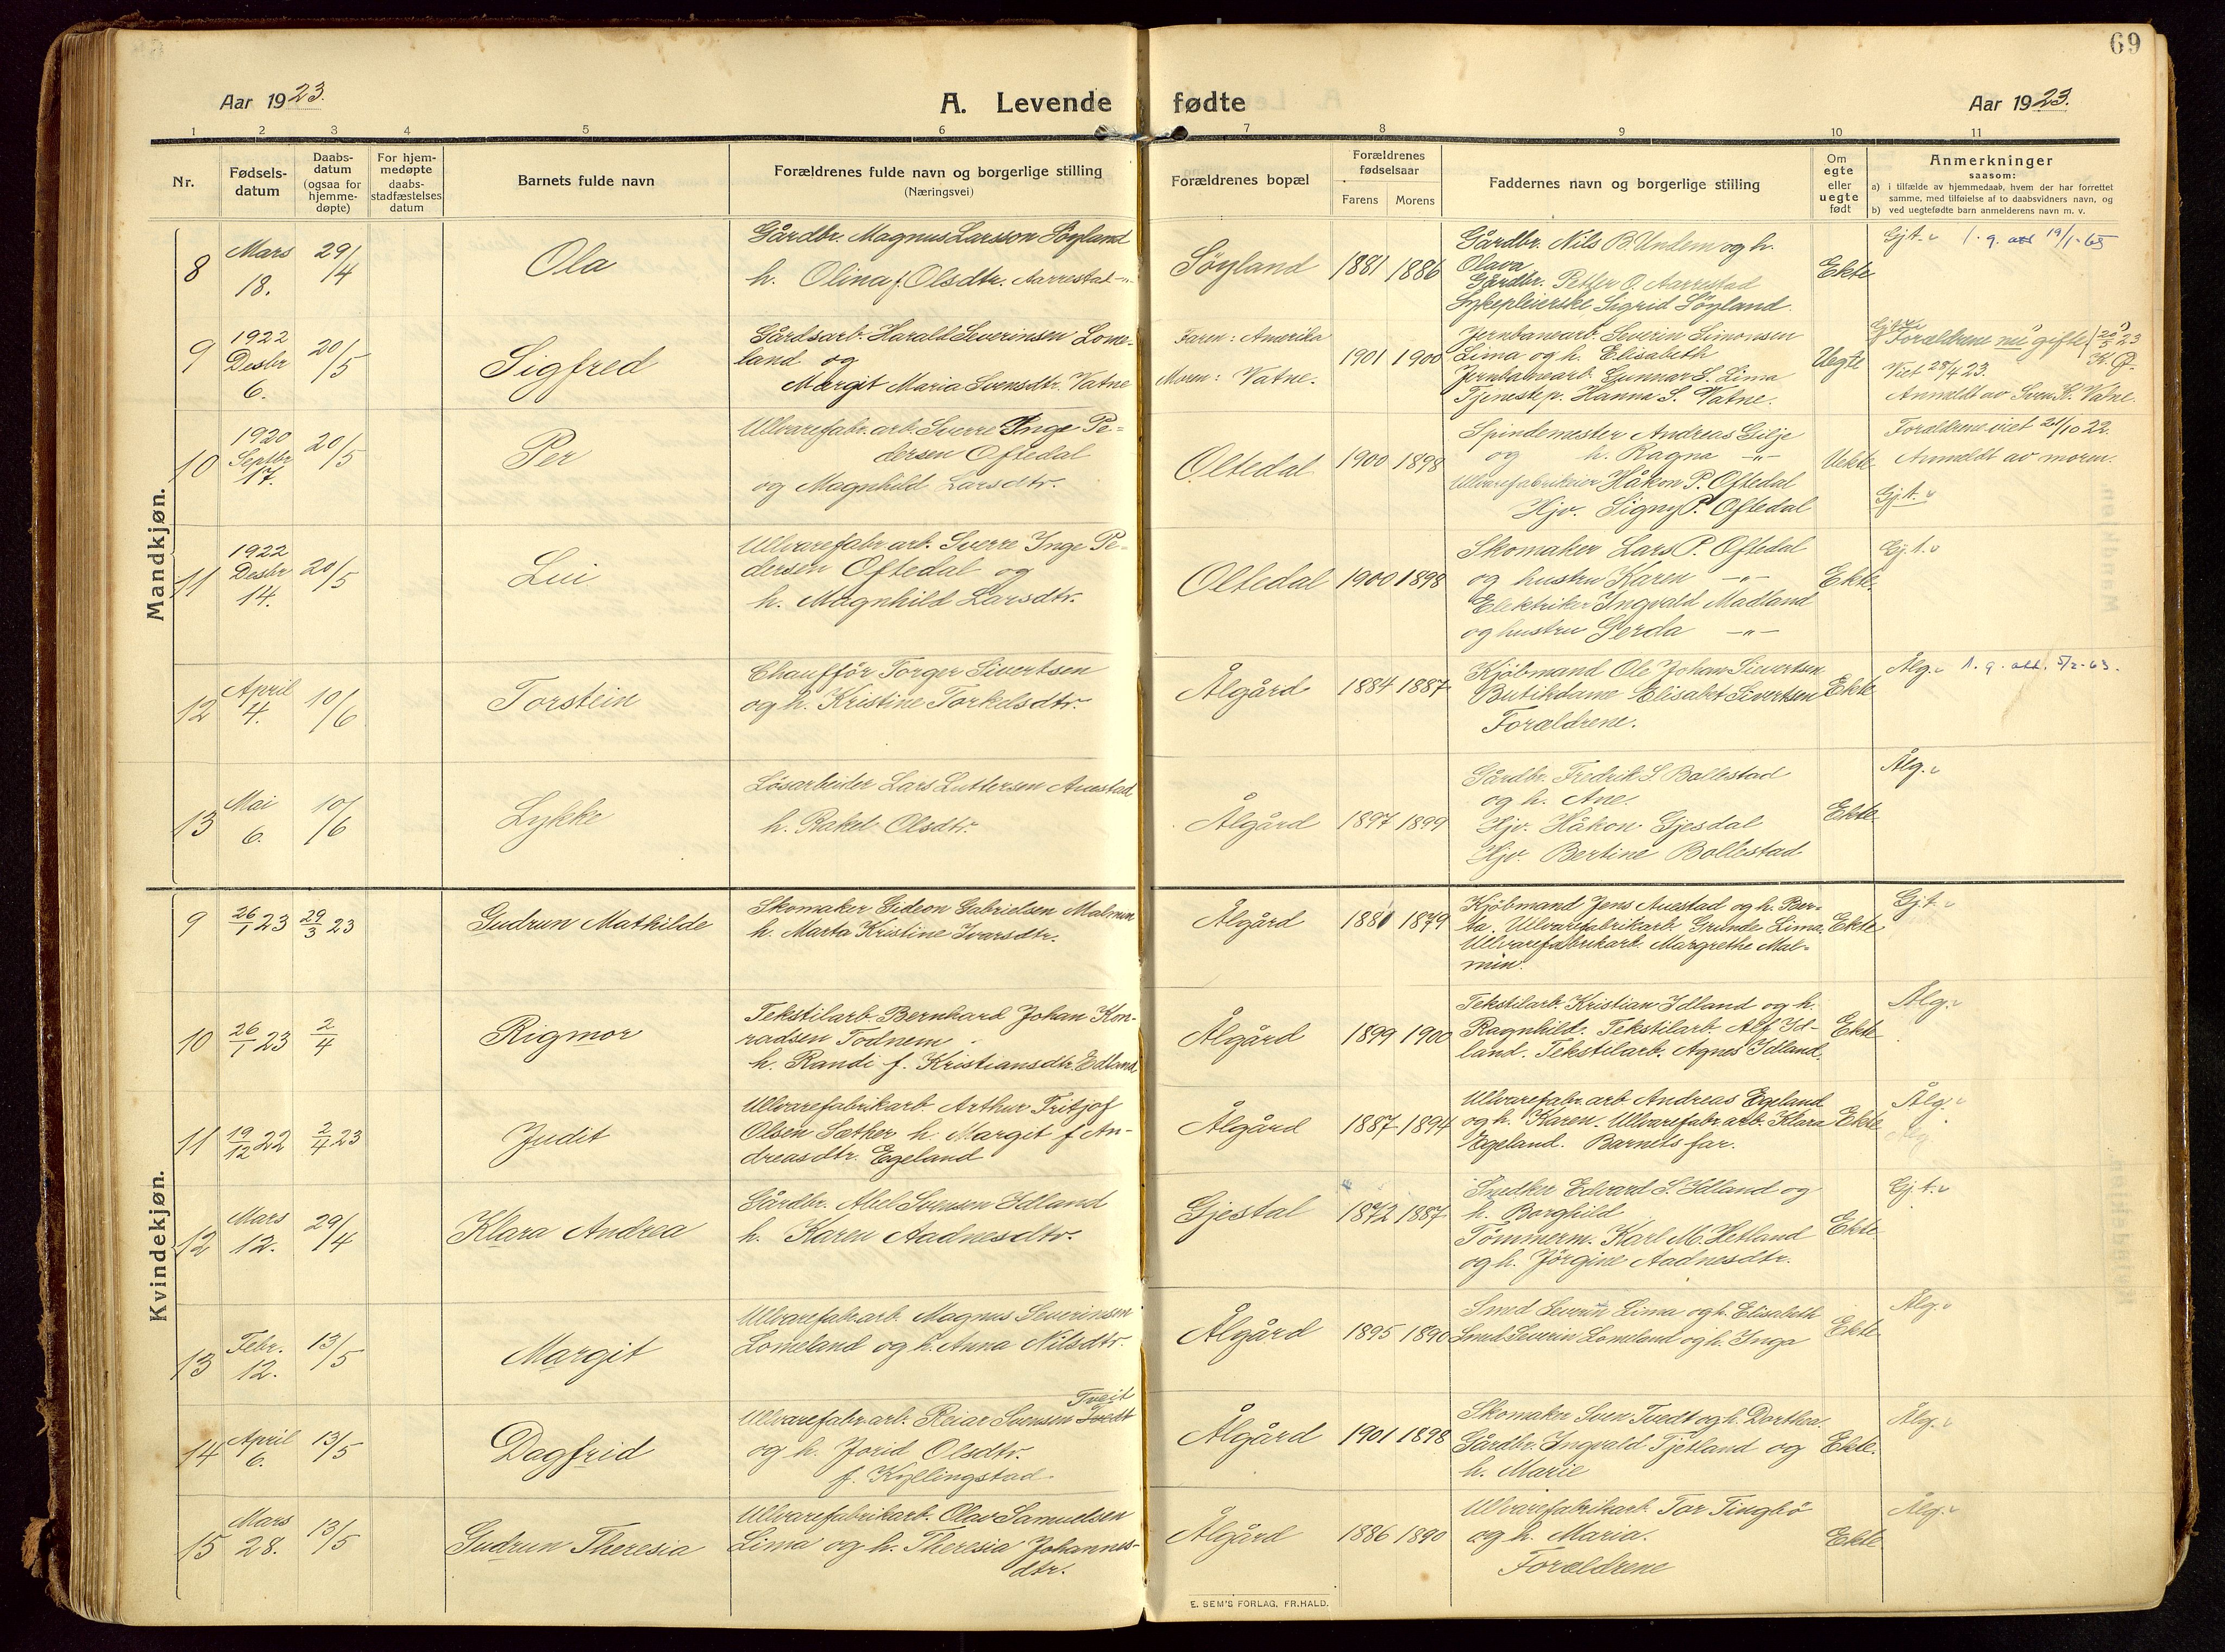 69
Aar 1923.
A. Levende fødte
Aar 1923.
1 2 3 4 5 6 7 8 9 10 11
Nr.
Fødsels-
datum
Daabs-
datum
(ogsaa for
hjemme-
døpte)
For hjem-
medøpte
daabs-
stadfæstelses
datum
Barnets fulde navn
Forældrenes fulde navn og borgerlige stilling
(Næringsvei)
Forældrenes bopæl
Forældrenes
fødselsaar
Farens Morens
Faddernes navn og borgerlige stilling
Om
egte
eller
uegte
født
Anmerkninger
saasom:
a) i tilfælde av hjemmedaab, hvem der har forrettet
samme, med tilføielse af to daabsvidners navn, og
b) ved uegtefødte barn anmelderens navn m. v.
Mandkjøn.
8
Mars
18.
29/4
Ola
Gårdbr. Magnus Larsson Söyland
h. Olina f. Olsdtr. Aarrestad
Söyland
1881 1886
Gårdbr. Nils B. Undem og h.
Olava
Gårdbr. Petter O. Aarrestad
Sykepleierske Sigrid Söyland.
Ekte
Gj.t. 1. g. att 19/1-65
9
1922
Desbr
6.
20/5
Sigfred
Gårdsarb. Harald Severinsen Lome-
land og
Margit Maria Svensdtr. Vatne
Faren: Amerika
Moren: Vatne.
1901 1900
Jernbanearb. Severin Simonsen
Lima og h. Elisabeth
Jernbanearb. Gunnar S. Lima
Tjenestep. Hanna S. Vatne.
Uegte
Forældrene nu gifte
Viet 28/4 23.
Anmeldt av Sven K. Vatne.
10
1920
Septbr
17.
20/5
Per
Ullvarefabr.arb. Sverre Inge Pe-
dersen Oftedal
og Magnhild Larsdtr.
Oltedal
1900 1898
Spindemester Andreas Gilje
og h. Ragna -"-
Ullvarefabrikeier Håkon P. Oftedal
Hjv. Signy P. Oftedal
Uekte
Forældrene viet 21/10 22.
Anmeldt av moren.
Gj.t.
11
1922
Desbr
14.
20/5
Lui
Ullvarefabr.arb. Sverre Inge Pe-
dersen Oftedal og
h. Magnhild Larsdtr.
Oltedal
1900 1898
Skomaker Lars P. Oftedal
og hustru Karen -"-
Elektriker Ingvald Madland
og hustru Gerda -"-
Ekte.
Gj.t.
12
April
4.
10/6
Torstein
Chaufför Torger Sivertsen
og h. Kristine Torkelsdtr.
Ålgård
1884 1887
Kjöbmand Ole Johan Sievertsen
Butikdame Elisabet Sivertsen
Forældrene.
Ekte
Ålg. 1. g. att. 5/2-63.
13
Mai
6.
10/6
Lykke
Lösarbeider Lars Luttersen Auestad
h. Rakel Olsdtr.
Ålgård
1897 1899
Gårdbr. Fredrik S Bollestad
og h. Ane.
Hjv. Håkon Gjesdal
Hjv. Bertine Bollestad
Ekte
Ålg.
Kvindekjøn.
9
26/1 23
29/3 23
Gudrun Mathilde
Skomaker Gideon Gabrielsen Malmin
h. Marta Kristine Ivarsdtr.
Ålgård
1881 1879
Kjöbmand Jens Auestad og h. Ber-
ta. Ullvarefabrikarb. Grunde Lima.
Ullvarefabrikarb. Margrethe Mal-
min.
Ekte
Gj.t.
10
26/1 23
2/4
Rigmor
Tekstilarb. Bernhard Johan Kon-
radsen Todnem
h. Randi f. Kristiansdtr. Edland
Ålgård
1899 1900
Tekstilarb. Kristian Idland og h.
Ragnhild. Tekstilarb. Alf Id-
land. Tekstilarb. Agnes Idland.
Ekte
Ålg.
11
19/12 22
2/4 23
Judit
Ullvarefabrikarb. Arthur Fritjof
Olsen Sæther h. Margit f An-
dreasdtr. Egeland
Ålgård
1887 1894
Ullvarefabr.arb Andreas Egeland
og h. Karen. Ullvarefabr.arb. Klara
Egeland. Barnets far.
Ekte
Ålg.
12
Mars
12.
29/4
Klara Andrea
Gårdbr. Abel Svensen Edland
h. Karen Aadnesdtr.
Gjestal
1872 1887
Snedker Edvard S. Idland og
h. Borghild
Tömmerm. Karl M. Hetland
og h. Jörgine Aadnesdtr.
Ekte
Gj.t.
13
Febr.
12.
13/5
Margit
Ullvarefabr.arb. Magnus Severinsen
Lomeland og h. Anna Nilsdtr.
Ålgård
1895 1890
Smed Severin Lima og h. Elisabeth
Smed Severin Lomeland og h. Inga
Ekte
Ålg.
14
April
6.
13/5
Dagfrid
Tveit
Ullvarefabr.arb. Reiar Svensen Tvedt
og h. Jorid Olsdtr.
f. Kyllingstad.
Ålgård
1901 1898
Skomaker Sven Tvedt og h. Dorthea.
Gårdbr. Ingvald Tjetland og
h. Marie
Ekte.
Ålg.
15
Mars
28.
13/5
Gudrun Theresia
Ullvarefabrikarb. Olav Samuelsen
Lima og h. Theresia Johannes-
dtr.
Ålgård
1886 1890
Ullvarefabrikarb. Tor Tingbö
og h. Maria.
Forældrene
Ekte
Ålg.
E. SEM'S FORLAG, FR.HALD.